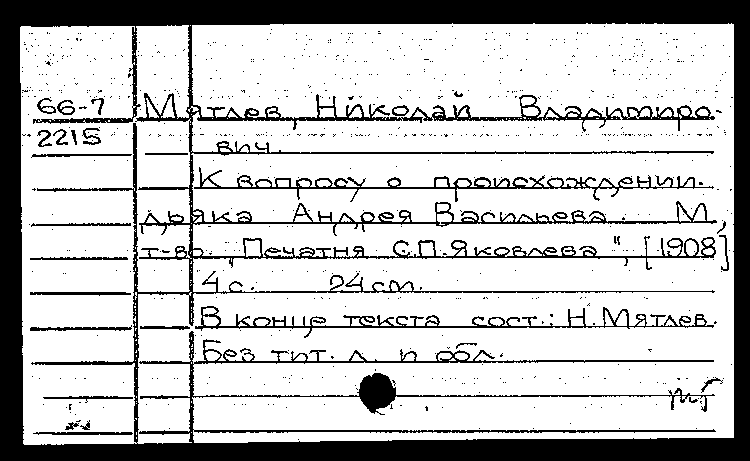 66-7 Мятлев, Николай Владимиро-
2215 вич.
К вопросу о происхождении
дьяка Андрея Васильева. М.,
т-во „Печатня С.П.Яковлева", [1908]
4 с. 24 см.
В конце текста сост.: Н. Мятлев.
Без тит. л. и обл.